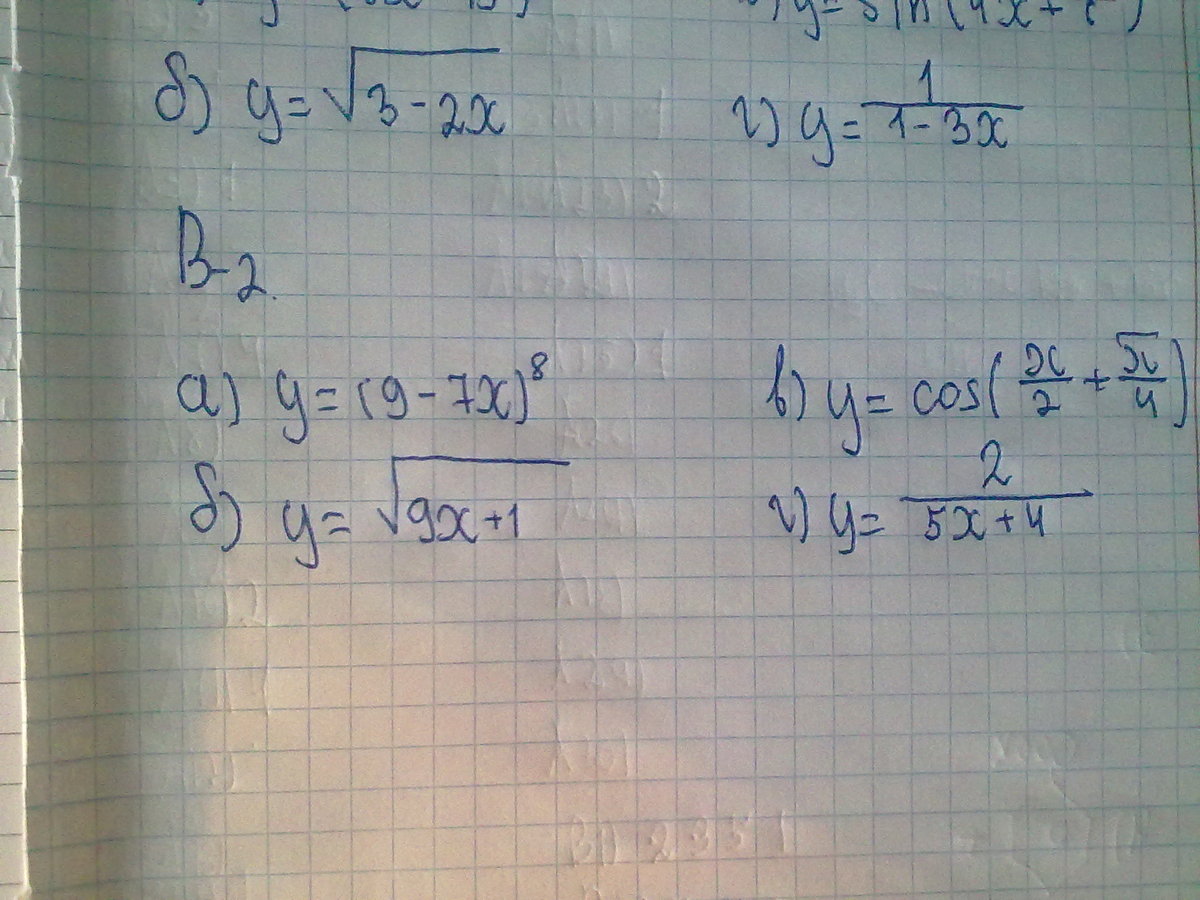 y = sin(4x +
б) y = √(3 - 2x) г) y = 1/(1 - 3x)
В-2.
а) y = (9 - 7x)⁸ в) y = cos(x/2 + π/4)
б) y = √(9x + 1) г) y = 2/(5x + 4)